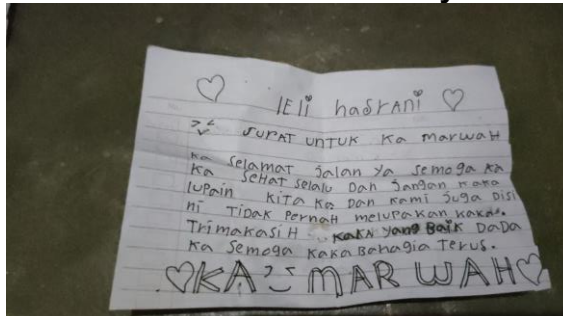 ♡ lEli hasrAni ♡
SUrAT UNTUK Ka marwaH
Ka Selamat Jalan Ya Semoga Ka
Ka SeHaT Selalu Dan Jangan Kaka
lupain KiTa Ka Dan Kami Juga Disi
ni Tidak Pernah melupakan Kaka.
TrimaKasiH KaKa Yang BaiK DaDa
Ka Semoga KaKa Bahagia Terus.
♡KA MARWAH♡